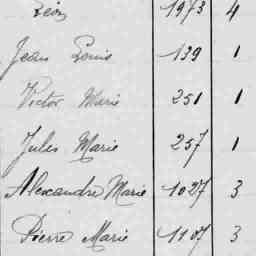 Léon 1973 4
Jean Louis 139 1
Victor Marie 251 1
Jules Marie 257 1
Alexandre Marie 1027 3
Pierre Marie 1107 3